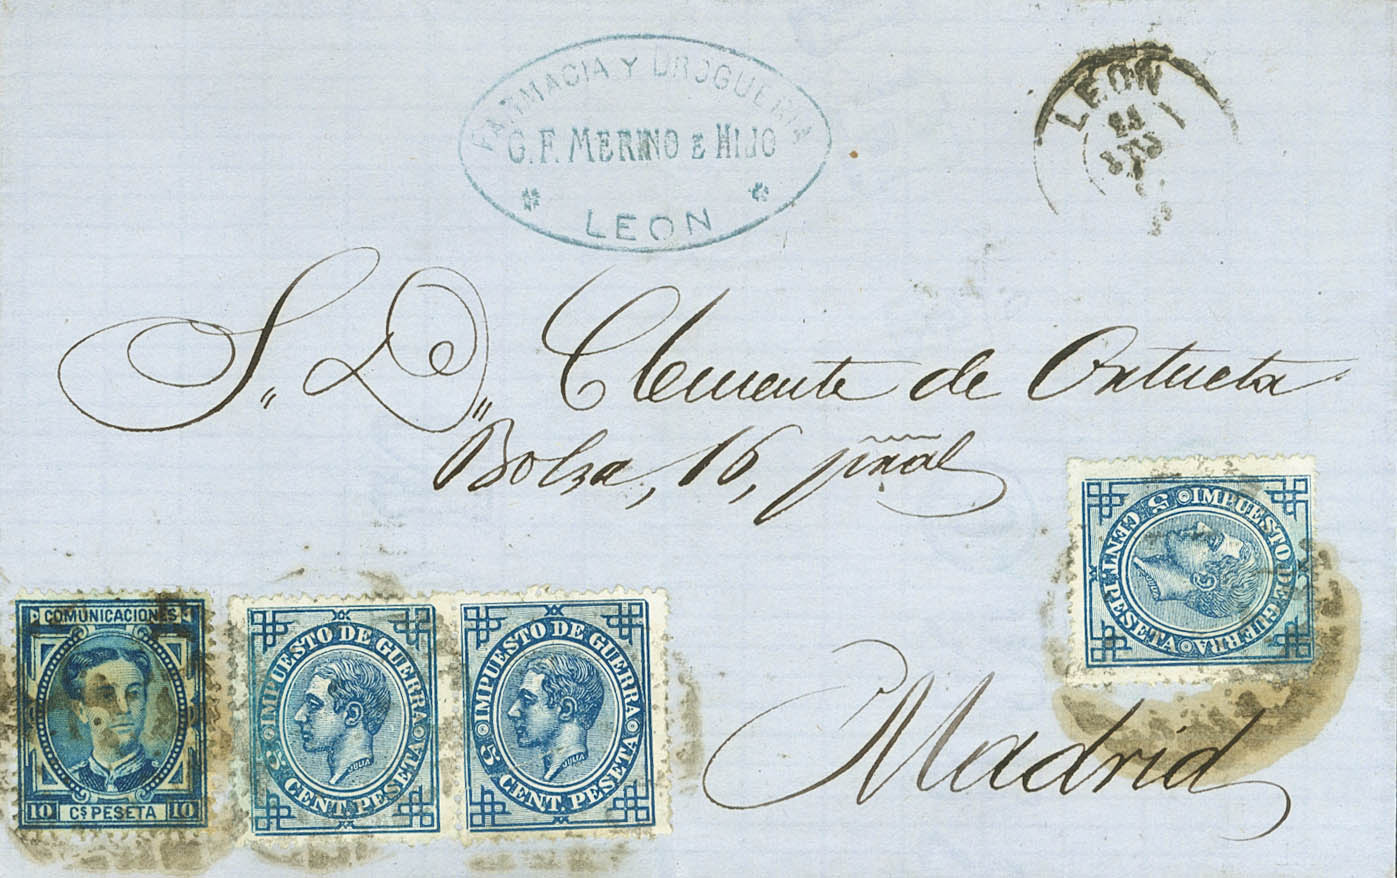 FARMACIA Y DROGUERIA
G. F. MERINO E HIJO
LEON
LEON
S,, D,, Clemente de Ortueta
Bolsa, 16, pñal
Madrid
COMUNICACIONES
10 Cs PESETA 10
IMPUESTO DE GUERRA
5 CENT. PESETA
JULIA
IMPUESTO DE GUERRA
5 CENT. PESETA
JULIA
IMPUESTO DE GUERRA
5 CENT. PESETA